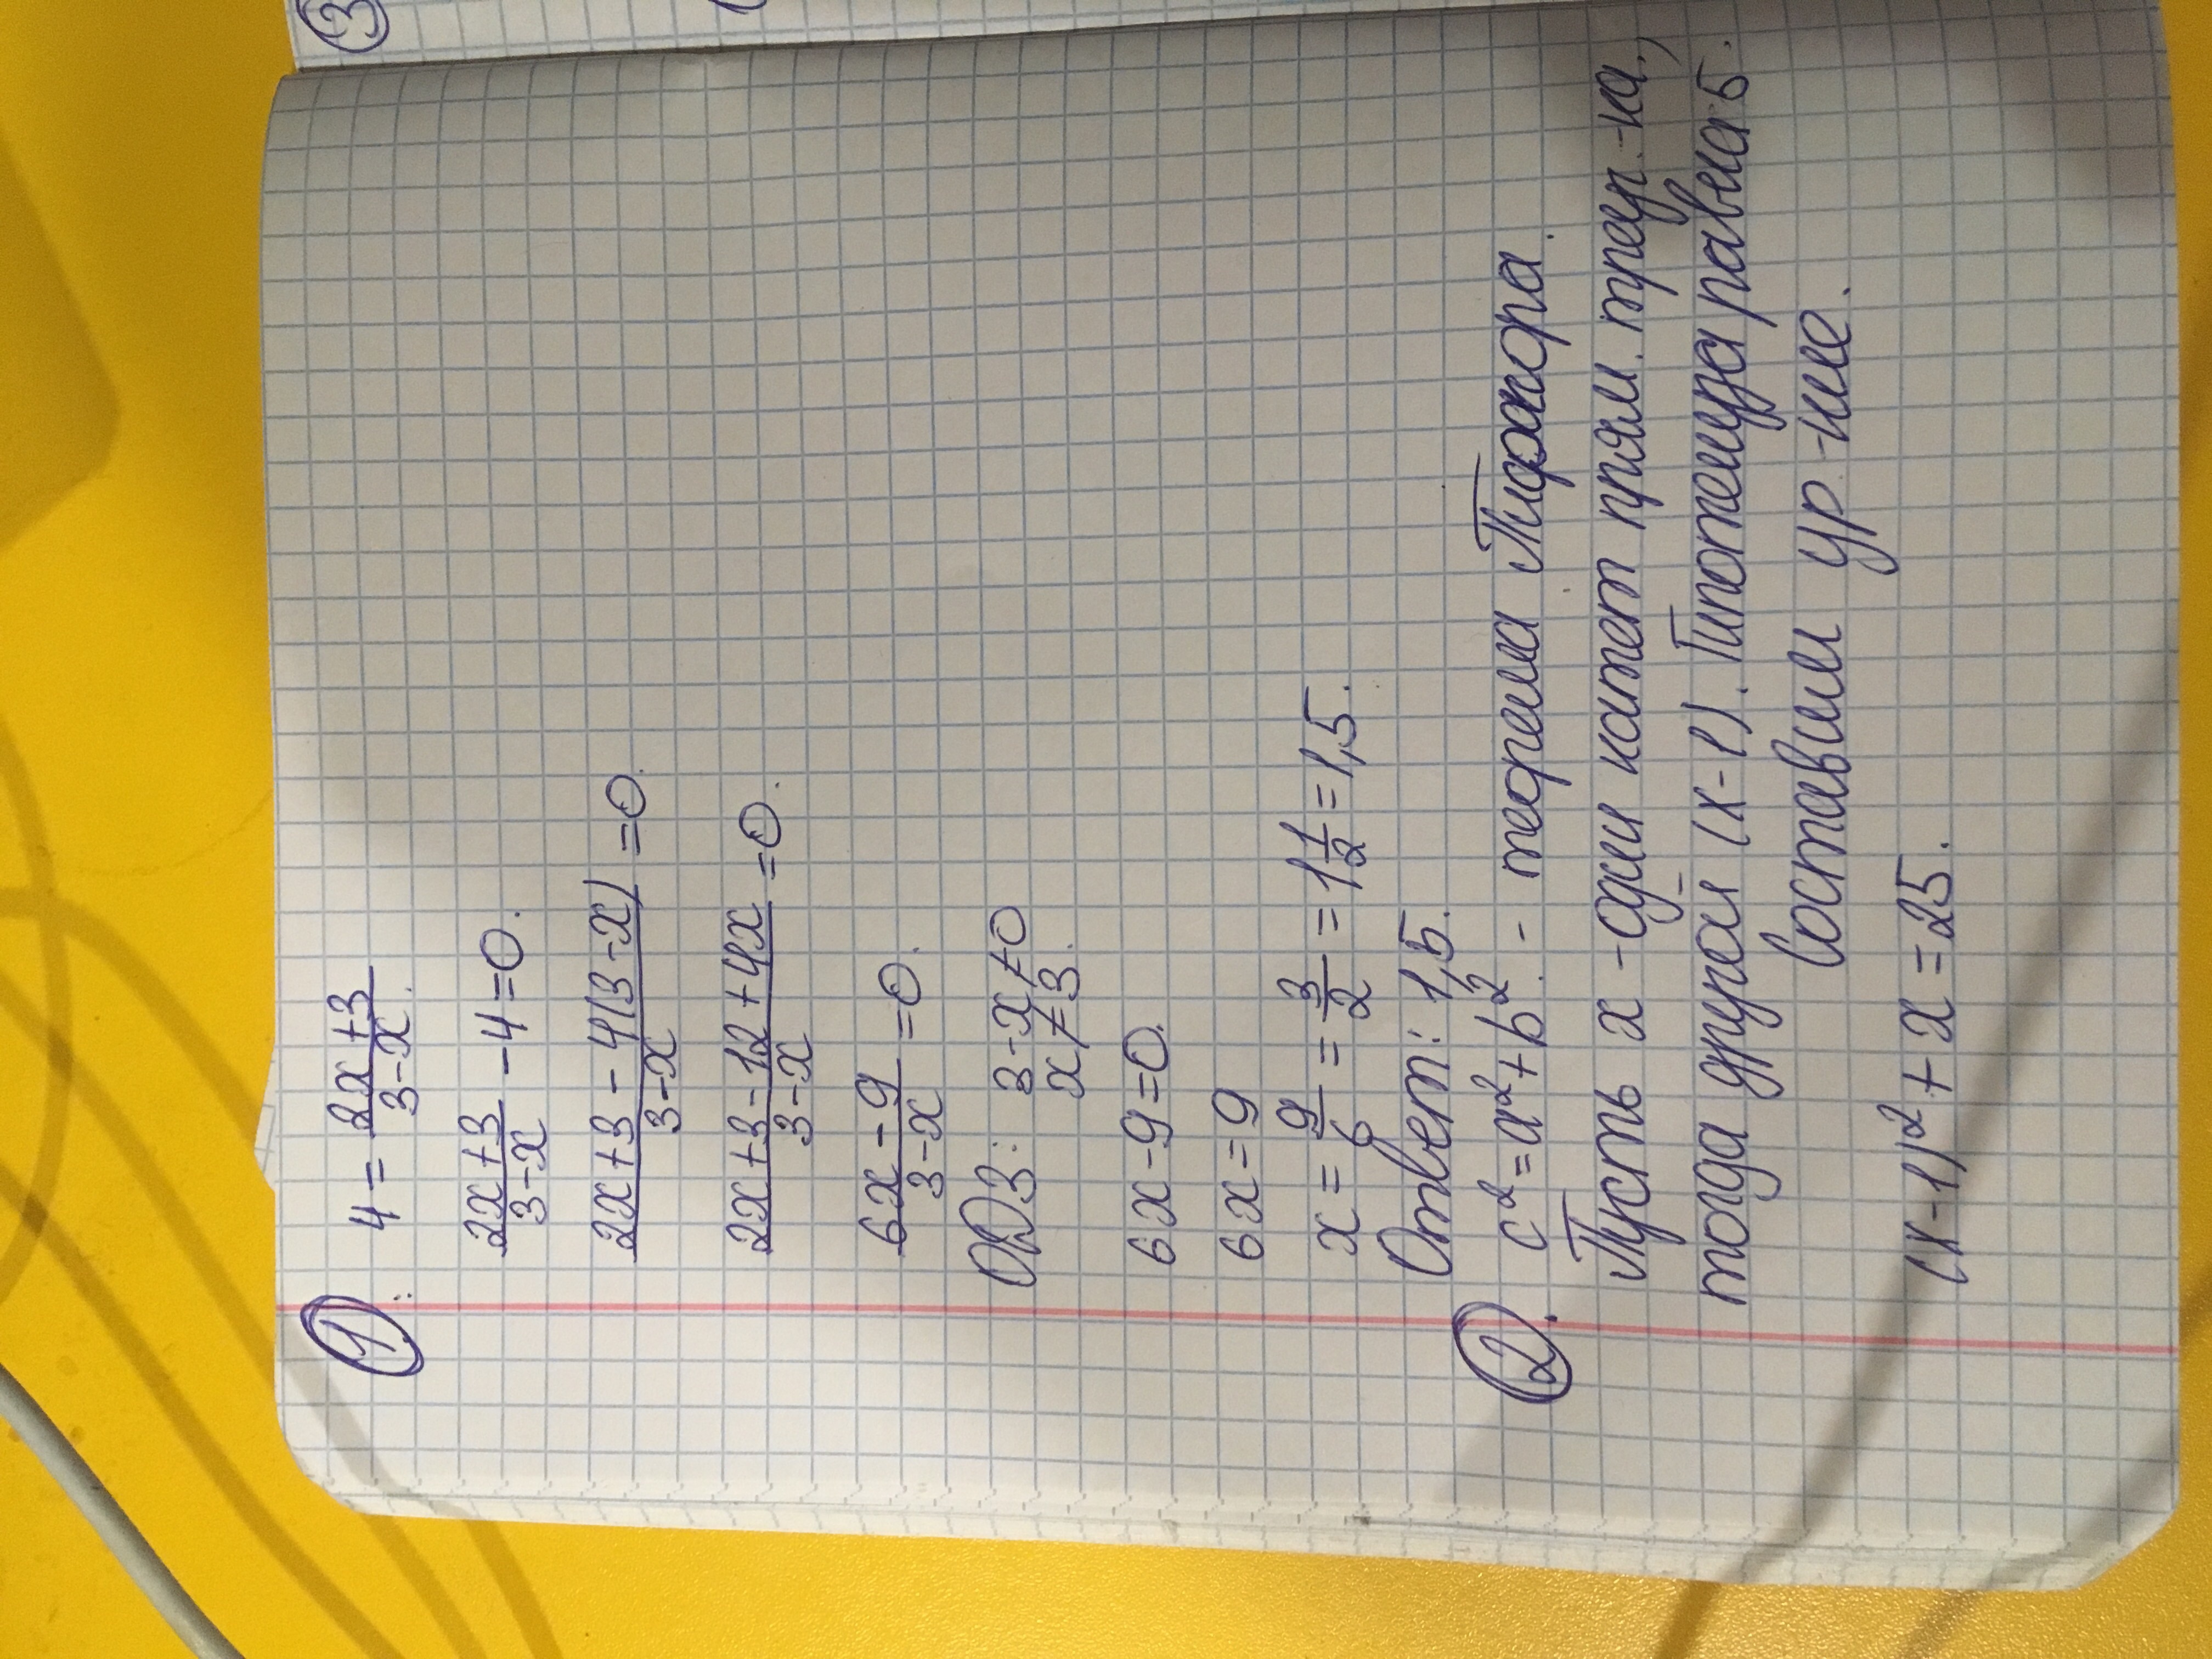 3
1. 4 = (2x+3)/(3-x).
(2x+3)/(3-x) - 4 = 0.
(2x+3 - 4(3-x))/(3-x) = 0.
(2x+3-12+4x)/(3-x) = 0.
(6x-9)/(3-x) = 0.
ОДЗ: 3-x≠0
x≠3.
6x-9=0.
6x=9
x = 9/6 = 3/2 = 1 1/2 = 1,5.
Ответ: 1,5.
2. c² = a² + b². - теорема Пифагора.
Пусть x - один катет прям. треу.-ка,
тогда другой (x-1). Гипотенуза равна 5.
Составим ур-ние.
(x-1)² + x = 25.